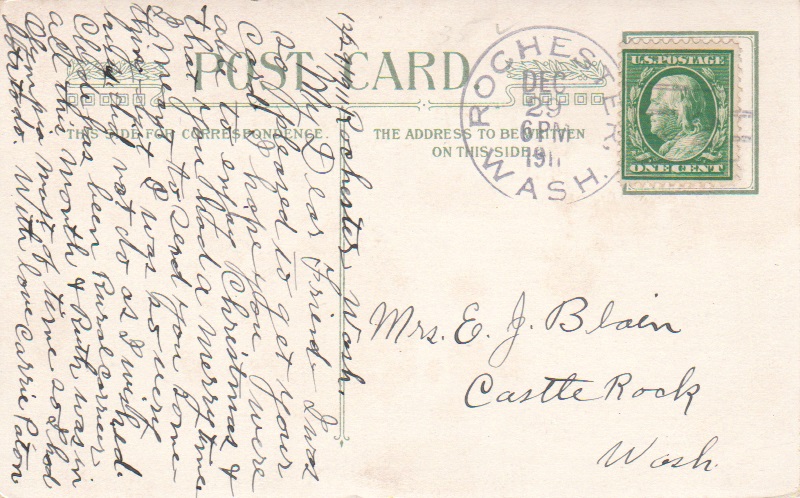 POST CARD
THIS SIDE FOR CORRESPONDENCE.
THE ADDRESS TO BE WRITTEN
ON THIS SIDE
ROCHESTER,
DEC
29
6 PM
1911
WASH.
U.S. POSTAGE
ONE CENT
Mrs. E. J. Blain
Castle Rock
Wash.
Rochester Wash.
My Dear Friend. I was
so pleased to get your
card I hope you were
able to enjoy Christmas &
that you had a merry time
I meant to send you some
thing but I was so very
and not do as I wished.
Chole has been Rural carrier
all this month & Ruth was in
Olympia most of time so I had
lots to do. With love Carrie Paton